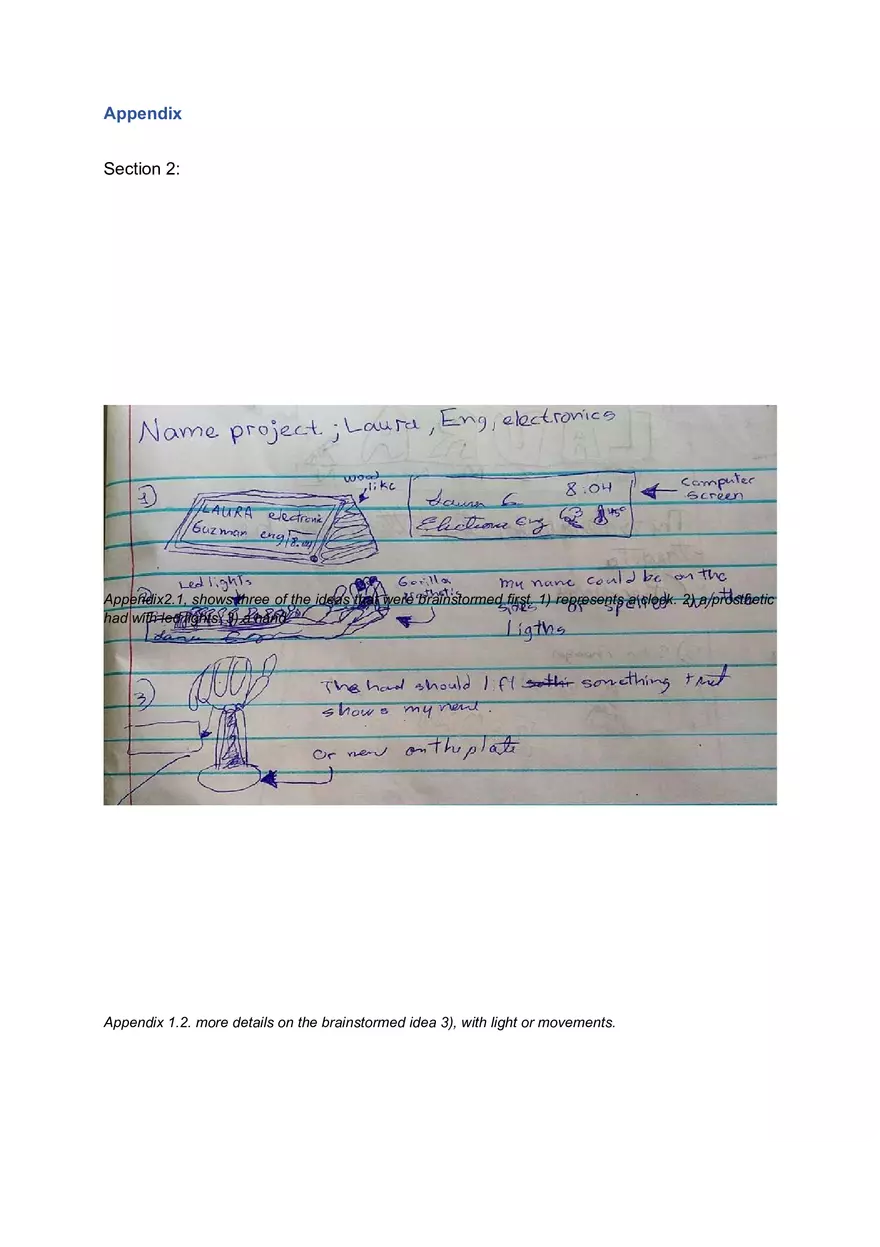 Appendix
Section 2:
Name project ; Laura, Eng, electronics
wood
like
1)
LAURA electronic
Guzman eng 8:04
Laura G 8:04
Electronic Eng 45°
Computer
screen
Led lights
Gorilla
my name could be on the
Appendix2.1, shows three of the ideas that were brainstormed first. 1) represents a clock. 2) a prosthetic
had with led lights. 3) a hand.
or
the
ligths
3)
The had should lift something that
shows my neme.
or neme on the plate
Appendix 1.2. more details on the brainstormed idea 3), with light or movements.